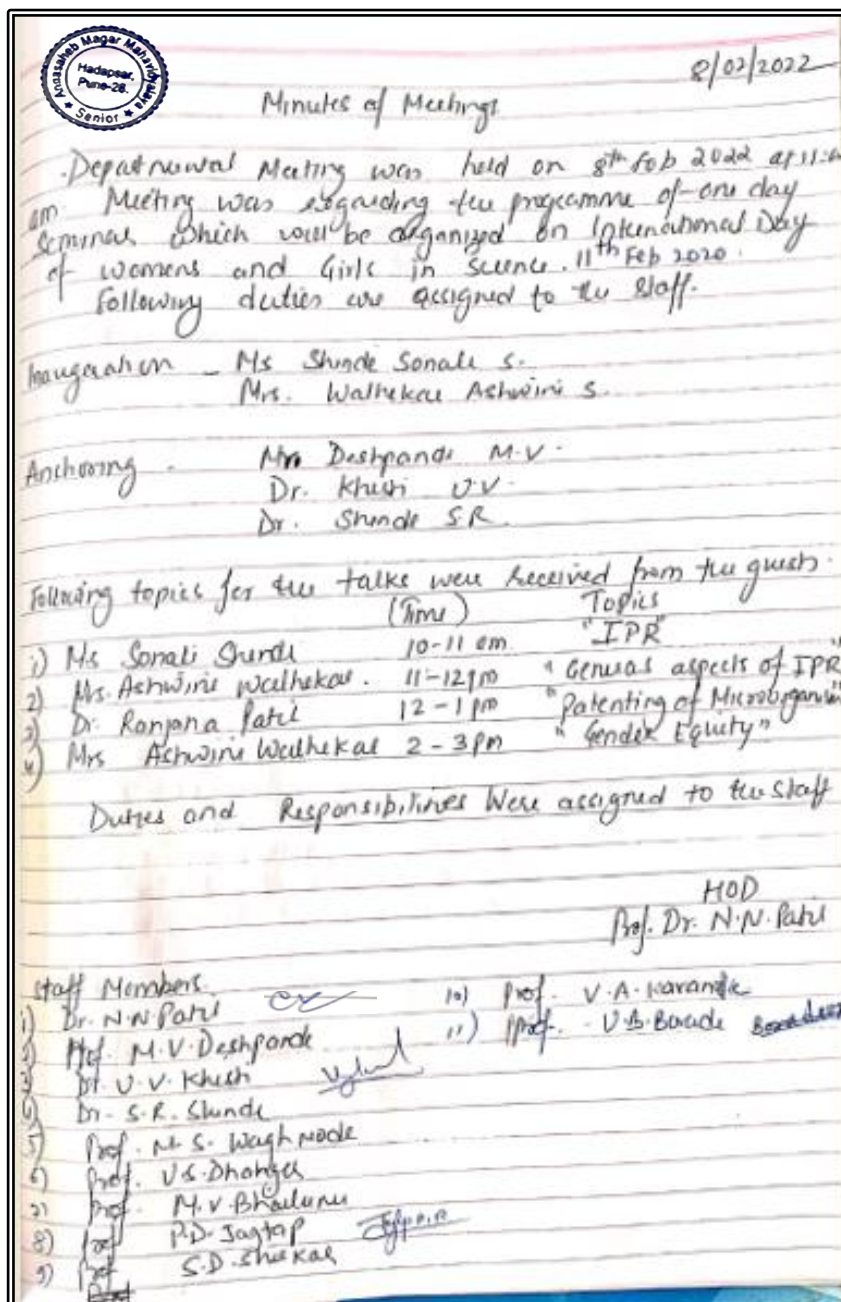 Annasaheb Magar Mahavidyalaya
Hadapsar,
Pune-28.
★ Senior ★
8/02/2022
Minutes of Meetings
Departmental Meeting was held on 8th Feb 2022 at 11:00
am. Meeting was regarding the programme of one day
seminar which will be organized on International Day
of womens and Girls in Science. 11th Feb 2020.
Following duties are assigned to the staff.
Inauguration - Ms Shinde Sonali S.
Mrs. Walhekar Ashwini S.
Anchoring - Mrs Deshpande M.V.
Dr. Khisti U.V.
Dr. Shinde S.R.
Following topics for the talks were received from the guests.
(Time) Topics
1) Ms Sonali Shinde 10-11 am "IPR"
2) Ms. Ashwini Walhekar. 11-12pm "General aspects of IPR"
3) Dr. Ranjana Patil 12-1pm "Patenting of Microorganism"
4) Mrs Ashwini Walhekar 2-3pm "Gender Equity"
Duties and Responsibilities were assigned to the staff
HOD
Prof. Dr. N.N. Patil
Staff Members.
1) Dr. N.N Patil
2) Prof. M.V. Deshpande
3) Dr. U.V. Khisti
4) Dr. S.R. Shinde
5) Prof. M.S. Waghmode
6) Prof. V.S. Dhangar
7) Prof. M.V.
8) Prof P.D. Jagtap
9) Prof S.D.
10) Prof. V.A. Karande
11) Prof. V.B. Barade